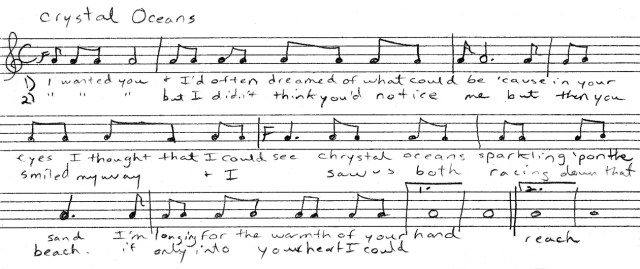 Crystal Oceans
1) I wanted you + I'd often dreamed of what could be 'cause in your
2) " " " but I didn't think you'd notice me but then you
eyes I thought that I could see chrystal oceans sparkling 'pon the
smiled my way + I saw us both racing down that
1. 2.
sand I'm longing for the warmth of your hand reach
beach. if only into your heart I could